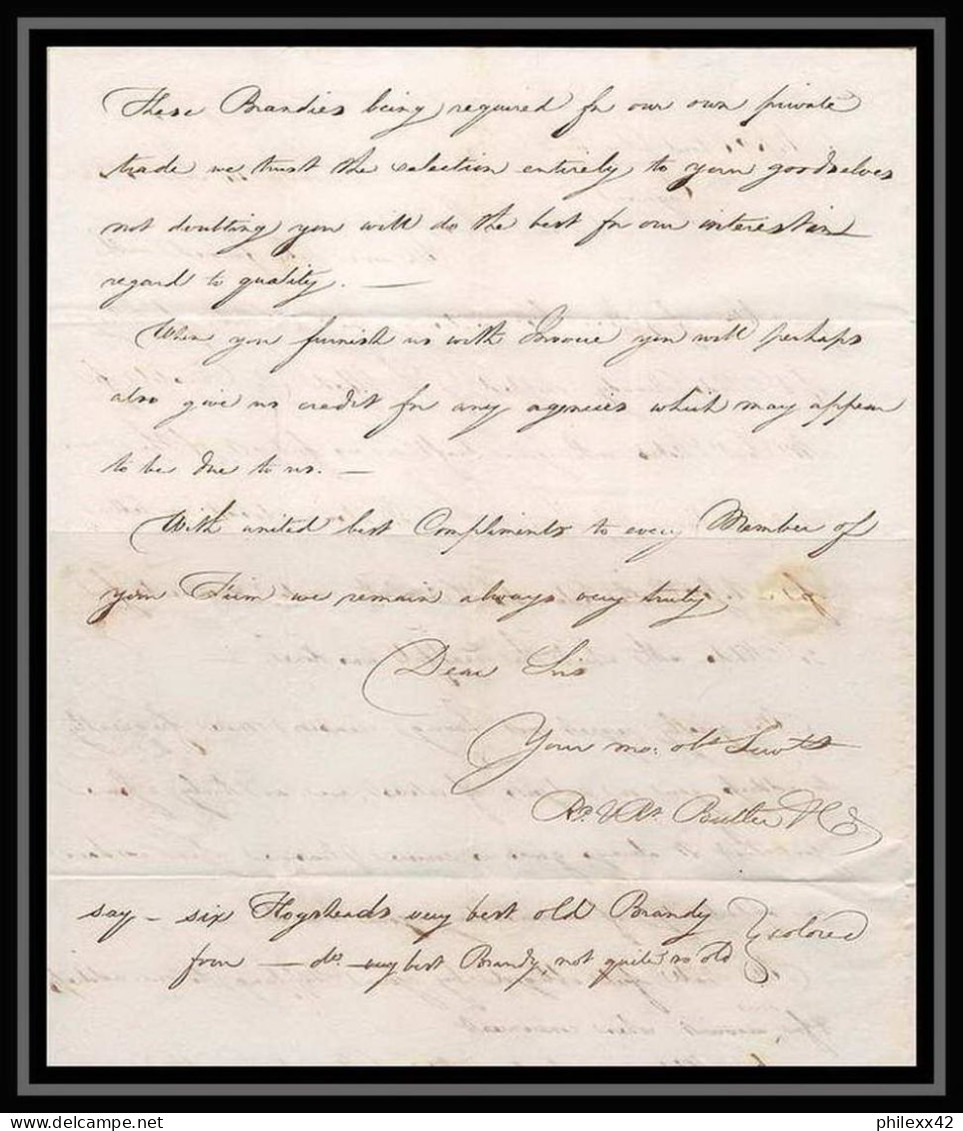 These Brandies being required for our own private
trade we trust the selection entirely to your goodselves
not doubting you will do the best for our interest in
regard to quality. —
When you furnish us with Invoice you will perhaps
also give us credit for any agencies which may appear
to be due to us. —
With united best Compliments to every Member of
your Firm we remain always very truly
Dear Sirs
Your mo: obt Servts
Butler & Co
say – six Hogsheads very best old Brandy
four — do. very best Brandy, not quite so old } colored
philexx42